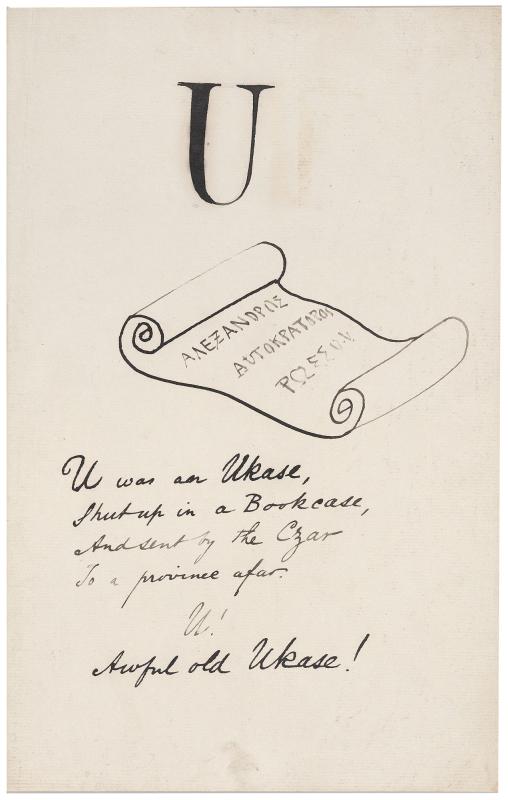 U
ΑΛΕΞΑΝΔΡΟΣ
ΑΥΤΟΚΡΑΤΟΡΟΣ
ΡΩΣΣΩΝ
U was an Ukase,
Shut up in a Bookcase,
And sent by the Czar
To a province afar.
U!
Awful old Ukase!